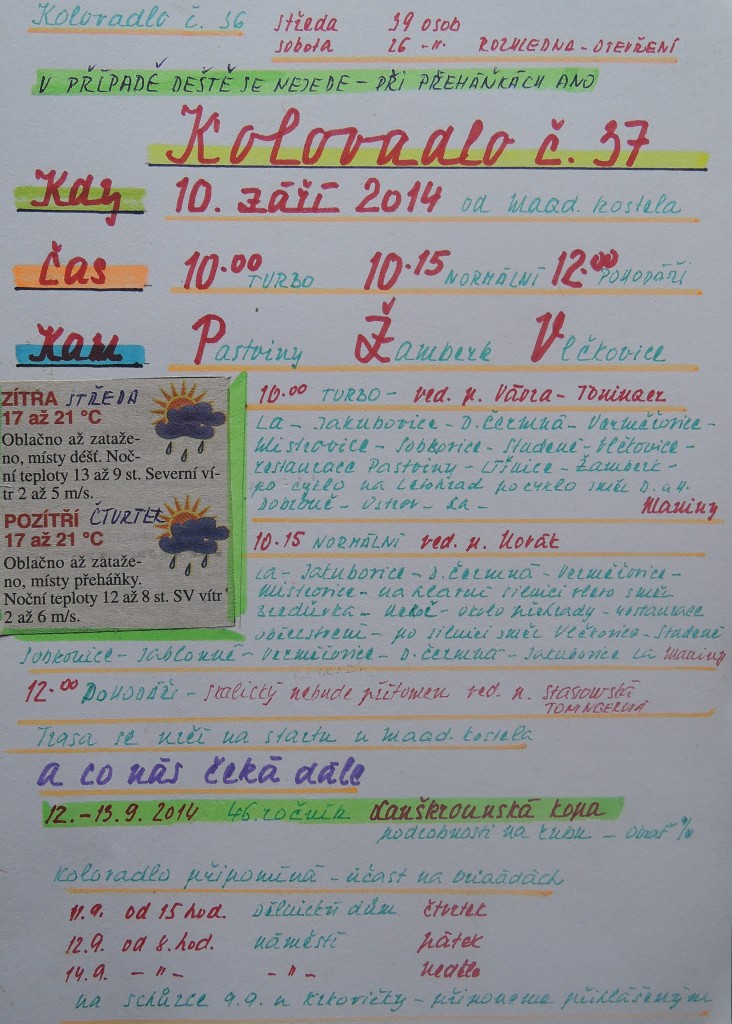 Kolovadlo č. 36
středa 39 osob
sobota 26 -"- ROZHLEDNA - OTEVŘENÍ
V PŘÍPADĚ DEŠTĚ SE NEJEDE - PŘI PŘEHÁŇKÁCH ANO
Kolovadlo č. 37
Kdy 10. září 2014 od Maad. kostela
Čas 10.00 TURBO 10.15 NORMÁLNÍ 12.00 POHODÁŘI
Kam Pastviny Žamberk Vlčkovice
ZÍTRA STŘEDA
17 až 21 °C
Oblačno až zataže-
no, místy déšť. Noč-
ní teploty 13 až 9 st. Severní ví-
tr 2 až 5 m/s.
POZÍTŘÍ ČTVRTEK
17 až 21 °C
Oblačno až zataže-
no, místy přeháňky.
Noční teploty 12 až 8 st. SV vítr
2 až 6 m/s.
10.00 TURBO - ved. p. Vávra - Tominger
La - Jakubovice - D. Čermná - Verměřovice -
Mistrovice - Sobkovice - Studené - Vlčkovice -
restaurace Pastviny - Líšnice - Žamberk -
po cyklo na Letohrad po cyklo směr D. a H.
Dobrouč - Ostrov - La - Hlaviny
10.15 NORMÁLNÍ ved. p. Novák
La - Jakubovice - D. Čermná - Verměřovice -
Mistrovice - na hlavní silnici vlevo směr
- Nekoř - okolo přehrady - restaurace
občerstvení - po silnici směr Vlčkovice - Studené
Sobkovice - Jablonné - Verměřovice - D. Čermná - Jakubovice La Hlaviny
12.00 POHODÁŘI - Skalický nebude přítomen ved. p. Stasowská
TOMINGEROVÁ
Trasa se určí na startu u Maad. kostela
a co nás čeká dále
12. - 13. 9. 2014 46. ročník Lanškrounská kopa
podrobnosti na rubu - Obrať %
Kolovadlo připomíná - účast na brigádách
11.9. od 15 hod. Dělnický dům čtvrtek
12.9. od 8. hod. náměstí pátek
14.9. - " - - " - neděle
na schůzce 9.9. u Krkovičky - připomeneme přihlášeným